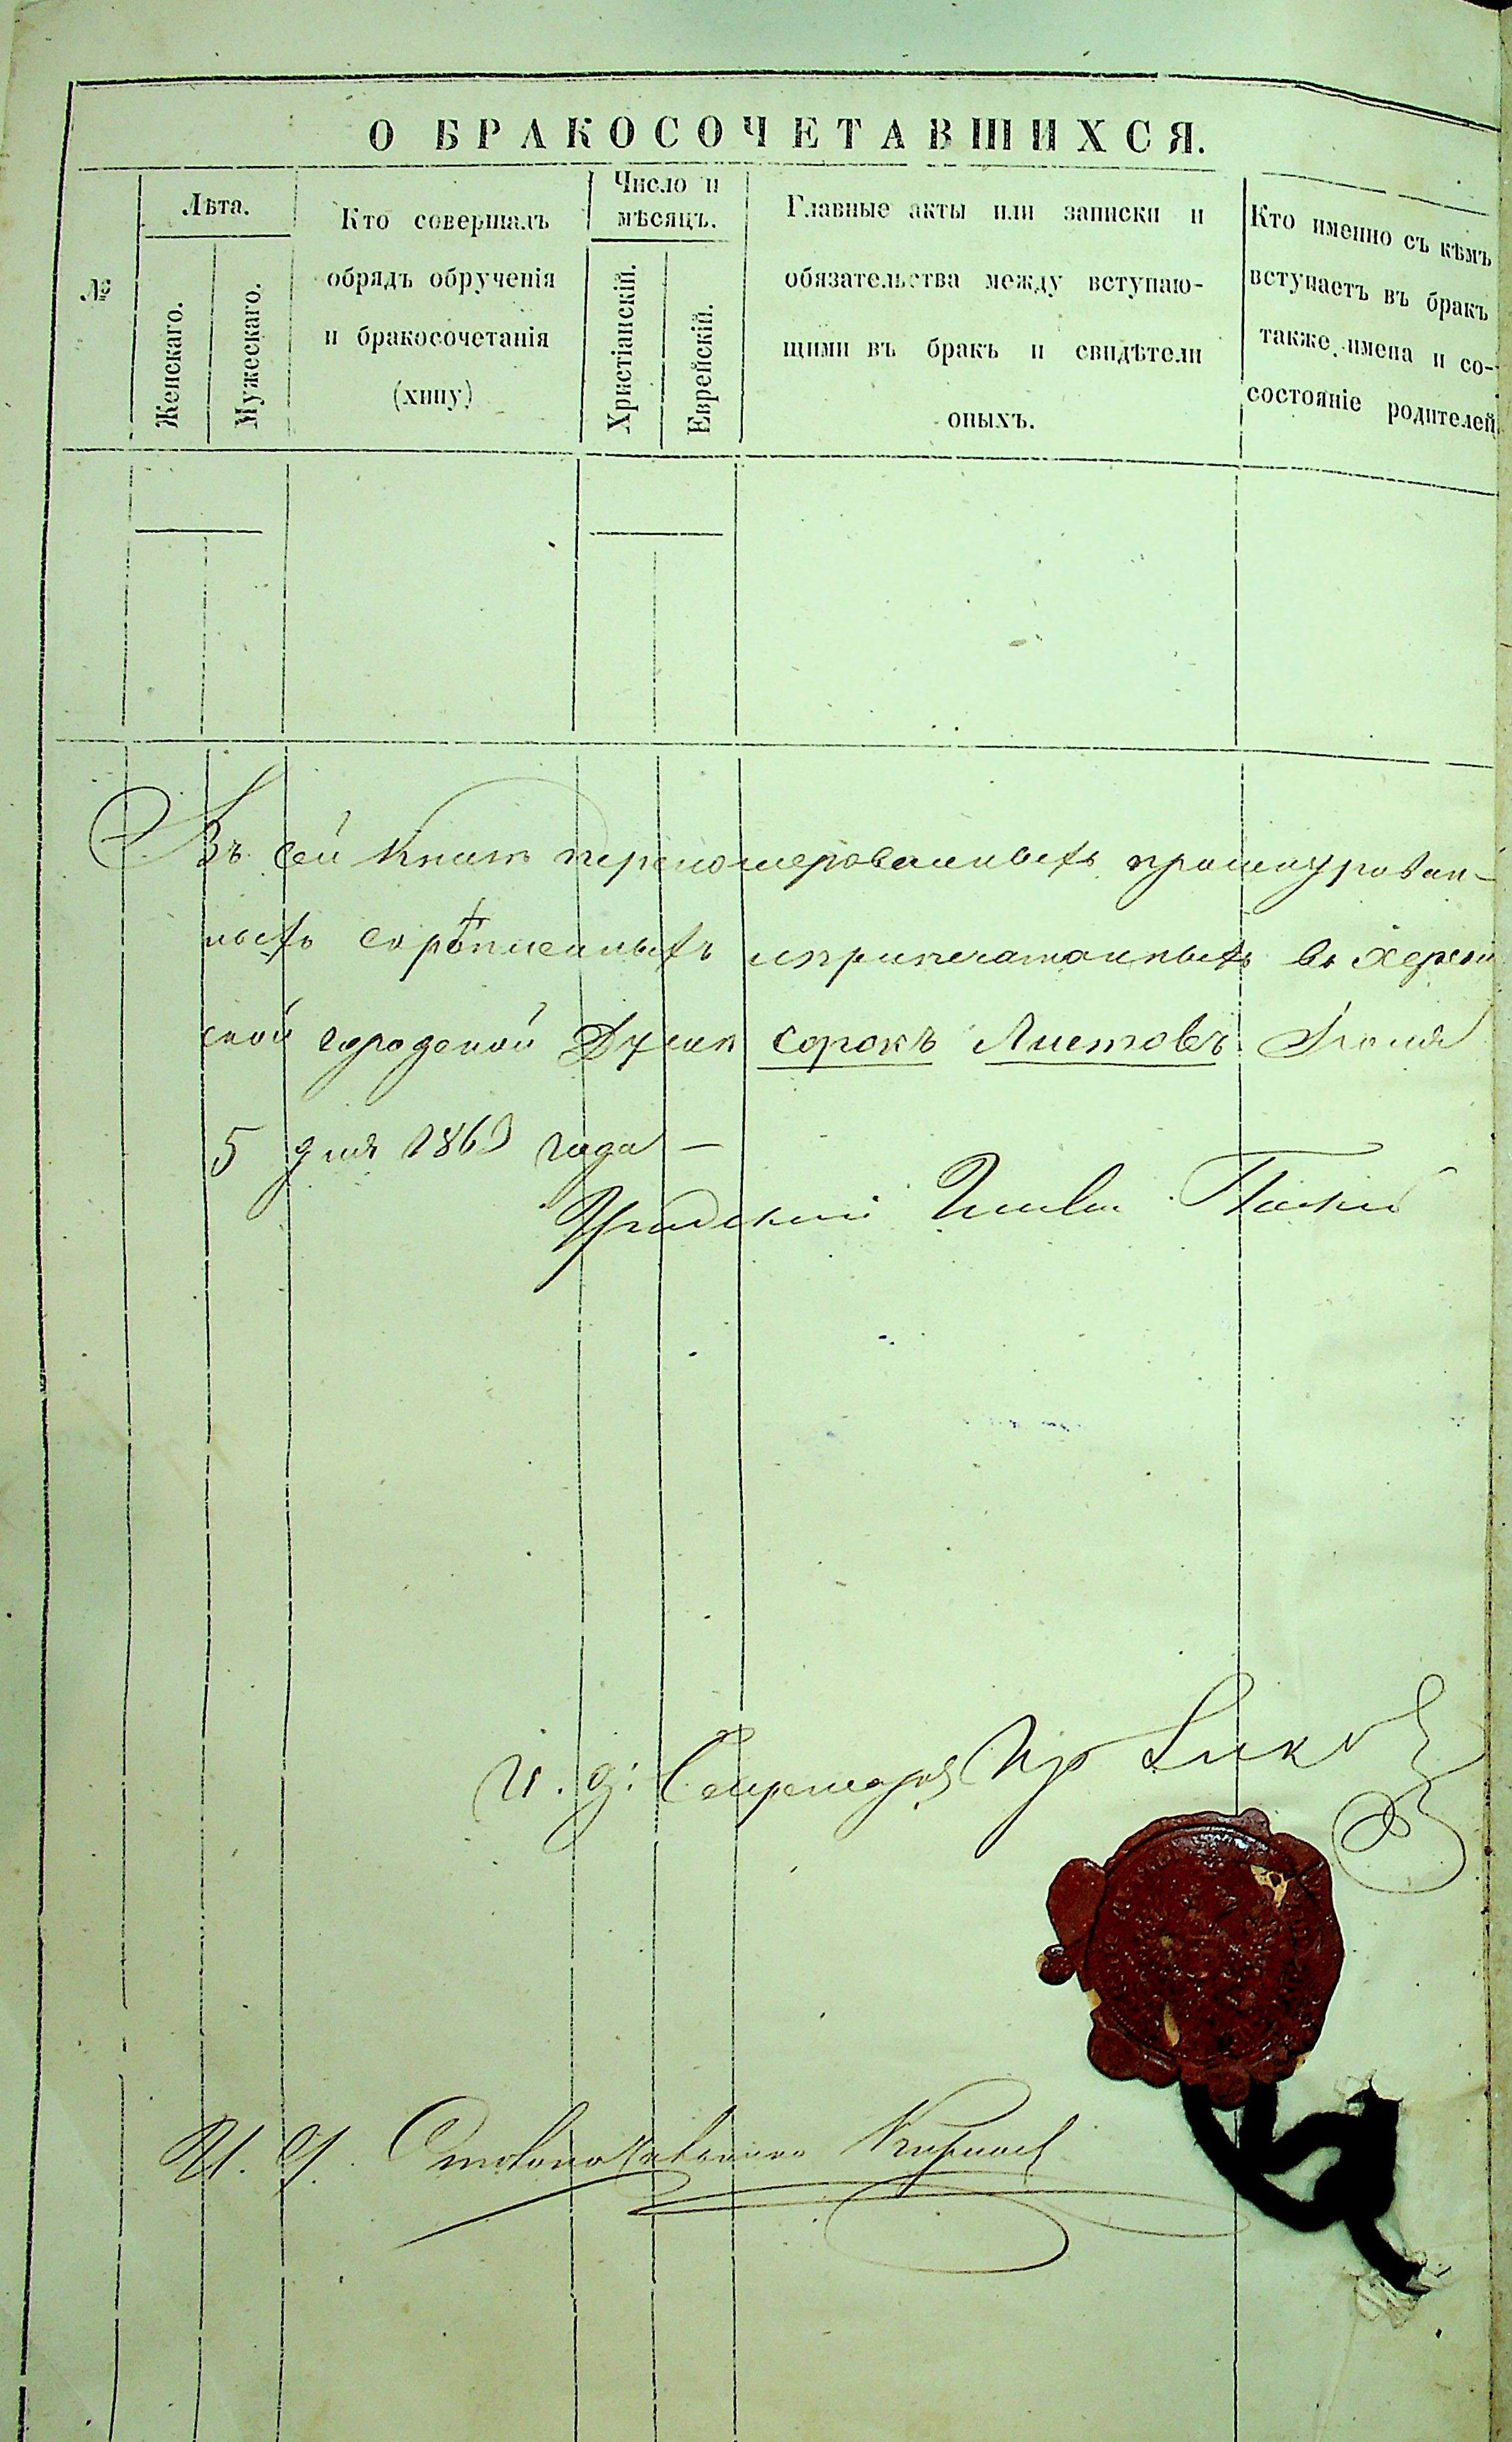 О БРАКОСОЧЕТАВШИХСЯ.
№
Лѣта.
Женскаго.
Мужескаго.
Кто совершалъ
обрядъ обрученія
и бракосочетанія
(хипу)
Число и
мѣсяцъ.
Христіанскій.
Еврейскій.
Главные акты или записки и
обязательства между вступаю-
щими въ бракъ и свидѣтели
оныхъ.
Кто именно съ кѣмъ
вступаетъ въ бракъ
также имена и со-
состояніе родителей
Въ сей книгѣ переномерованныхъ прошнурован-
ныхъ скрѣпленныхъ и припечатанныхъ въ Херсон
ской городской Думѣ сорокъ Листовъ. Іюня
5 дня 1863 года —
Градский Глава
И. д: Секретаря
И. д. Столоначальника